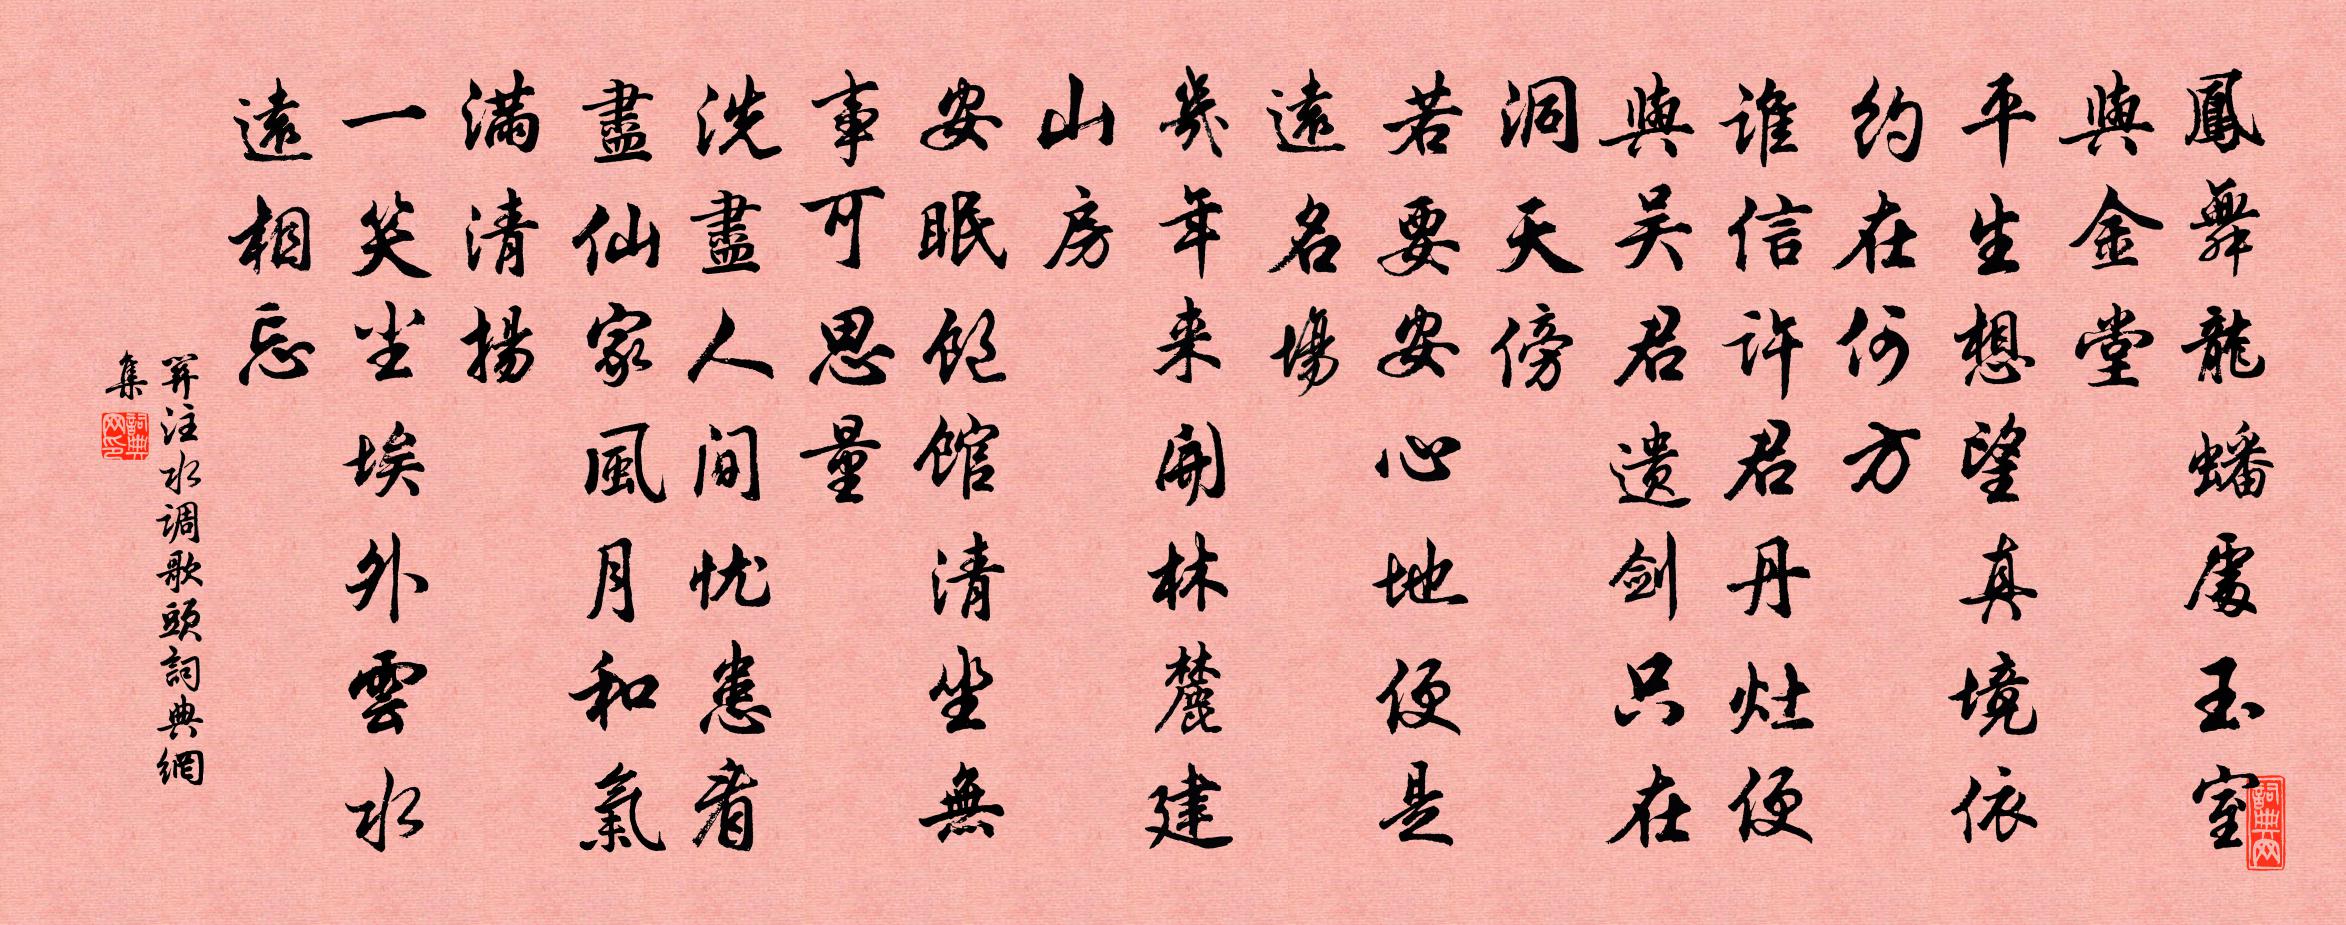 鳳舞龍蟠處玉室
與金堂
平生想望真境依
約在何方
誰信許君丹灶便
與吴君遗剑只在
洞天傍
若要安心地便是
遠名場
幾年来開林麓建
山房
安眠飽館清坐無
事可思量
洗盡人间忧患看
盡仙家風月和氣
滿清揚
一笑尘埃外雲水
遠相忘
羿注水调歌頭詞典網
集
詞典网
詞典网印